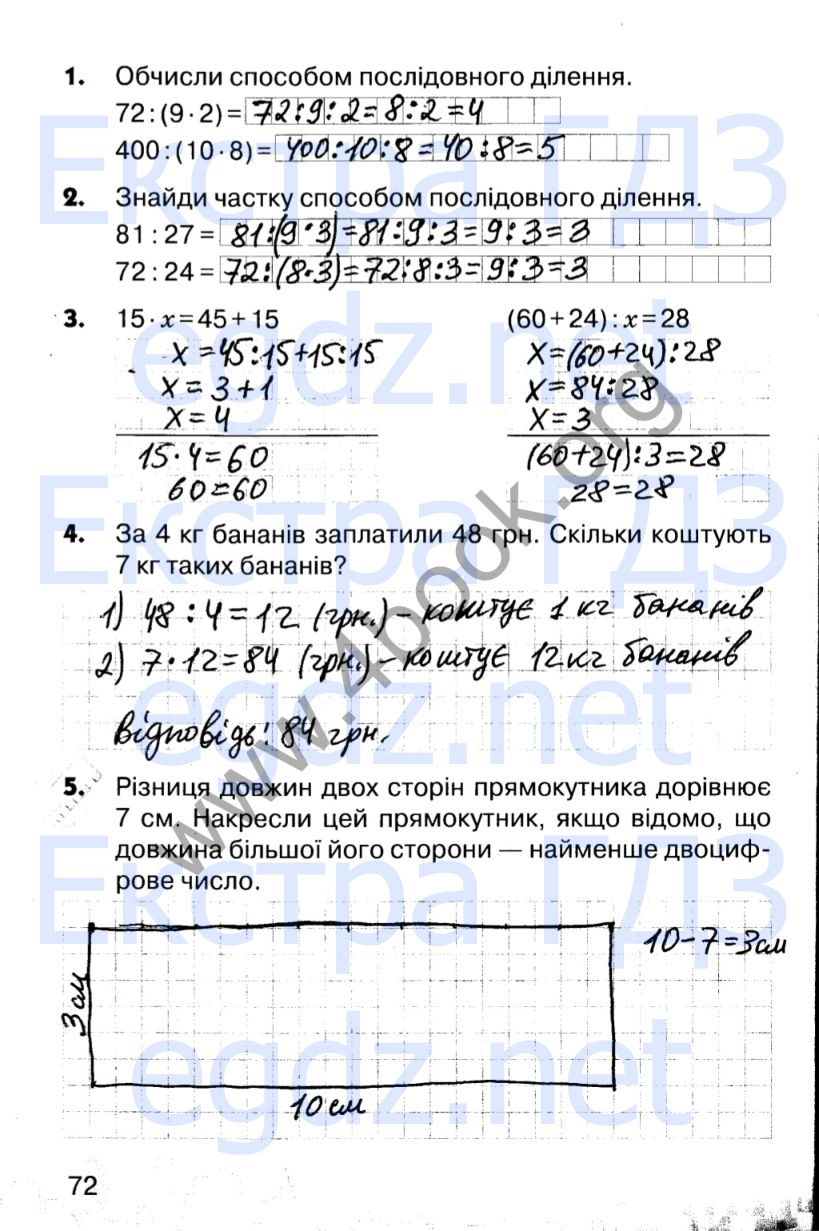 1. Обчисли способом послідовного ділення.
72 : (9 · 2) = 72:9:2=8:2=4
400 : (10 · 8) = 400:10:8=40:8=5
2. Знайди частку способом послідовного ділення.
81 : 27 = 81:(9·3)=81:9:3=9:3=3
72 : 24 = 72:(8·3)=72:8:3=9:3=3
3. 15 · x = 45 + 15
x = 45:15+15:15
x = 3+1
x = 4
15·4=60
60=60
(60 + 24) : x = 28
x=(60+24):28
x=84:28
x=3
(60+24):3=28
28=28
4. За 4 кг бананів заплатили 48 грн. Скільки коштують
7 кг таких бананів?
1) 48:4=12 (грн.) – коштує 1 кг бананів
2) 7·12=84 (грн.) – коштує 12 кг бананів
Відповідь: 84 грн.
5. Різниця довжин двох сторін прямокутника дорівнює
7 см. Накресли цей прямокутник, якщо відомо, що
довжина більшої його сторони — найменше двоциф-
рове число.
10-7=3см
3 см
10 см
72
Екстра ГДЗ
egdz.net
Екстра ГДЗ
egdz.net
Екстра ГДЗ
egdz.net
www.4book.org